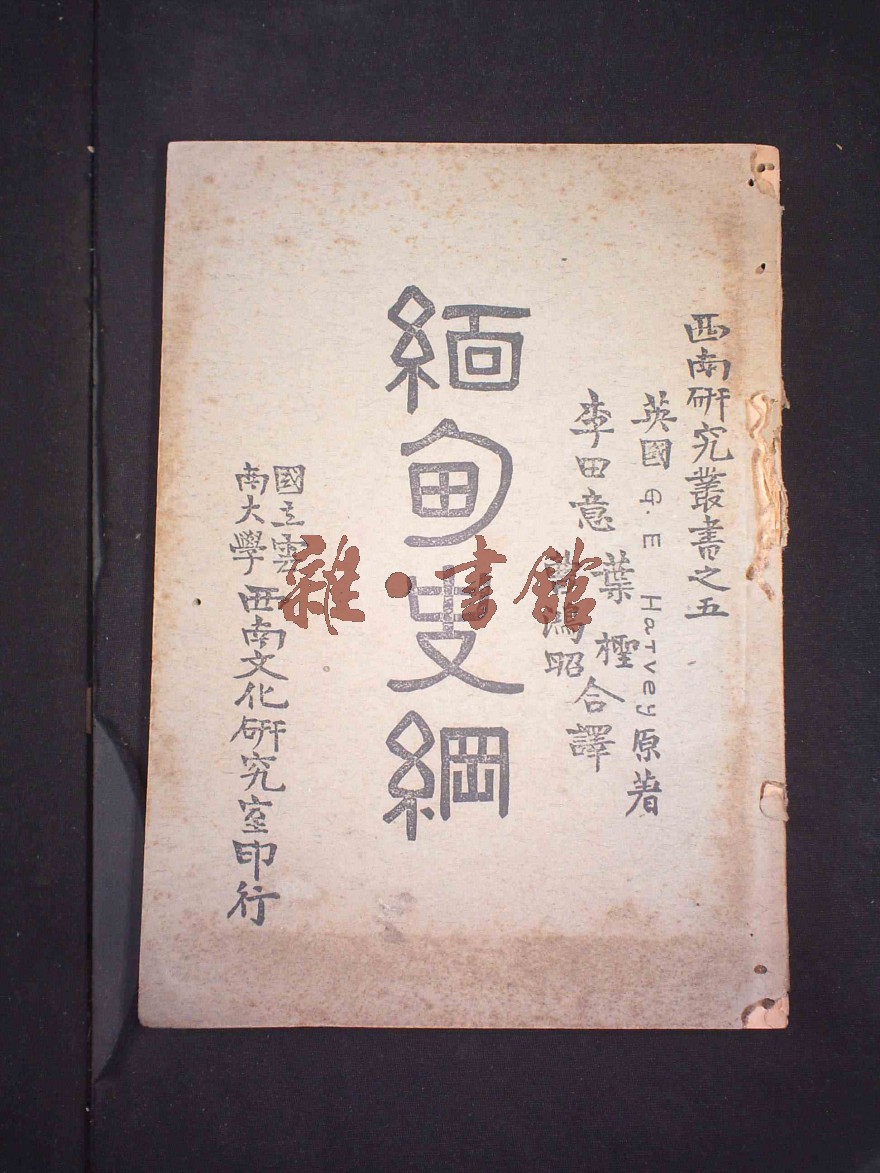 西南研究叢書之五
英國 G. E Harvey 原著
李田意 葉檉 曹鴻昭 合譯
緬甸史綱
國立雲南大學西南文化研究室印行
雜·書館